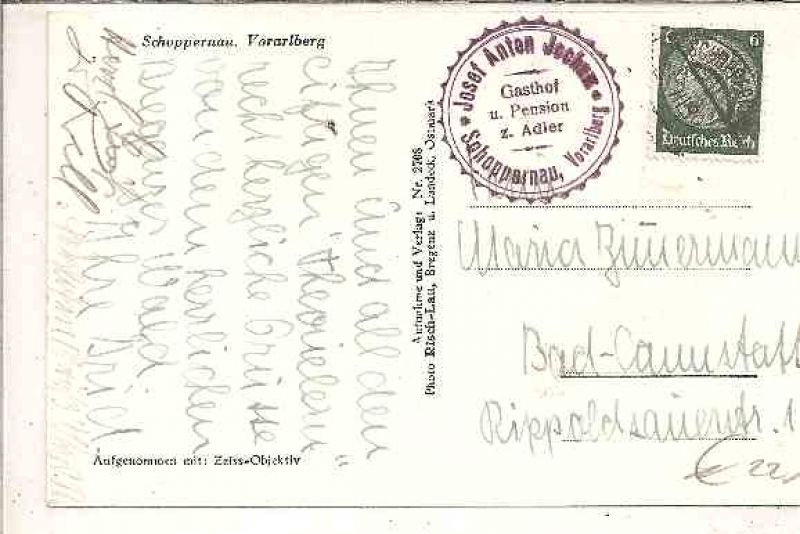 Schoppernau, Vorarlberg
Ihnen und all den
eifrigen "Theorielern"
recht herzliche Grüsse
von dem herrlichen
Bregenzer Wald
Ihre
Aufgenommen mit: Zeiss-Objektiv
Aufnahme und Verlag: Nr. 2708
Photo Risch-Lau, Bregenz u. Landeck, Ostmark
Josef Anton Jochum
Gasthof
u. Pension
z. Adler
Schoppernau, Vorarlberg
6 6
Deutsches Reich
Maria Zimmermann
Bad-Cannstatt
Rippoldsauerstr. 1